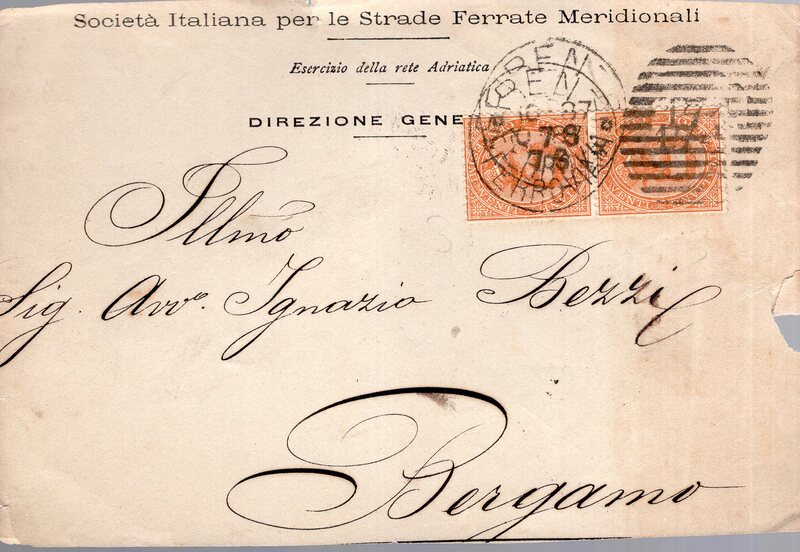 Società Italiana per le Strade Ferrate Meridionali
Esercizio della rete Adriatica
DIREZIONE GENE
Illmo
Sig. Avvo. Ignazio Bezzi
Bergamo